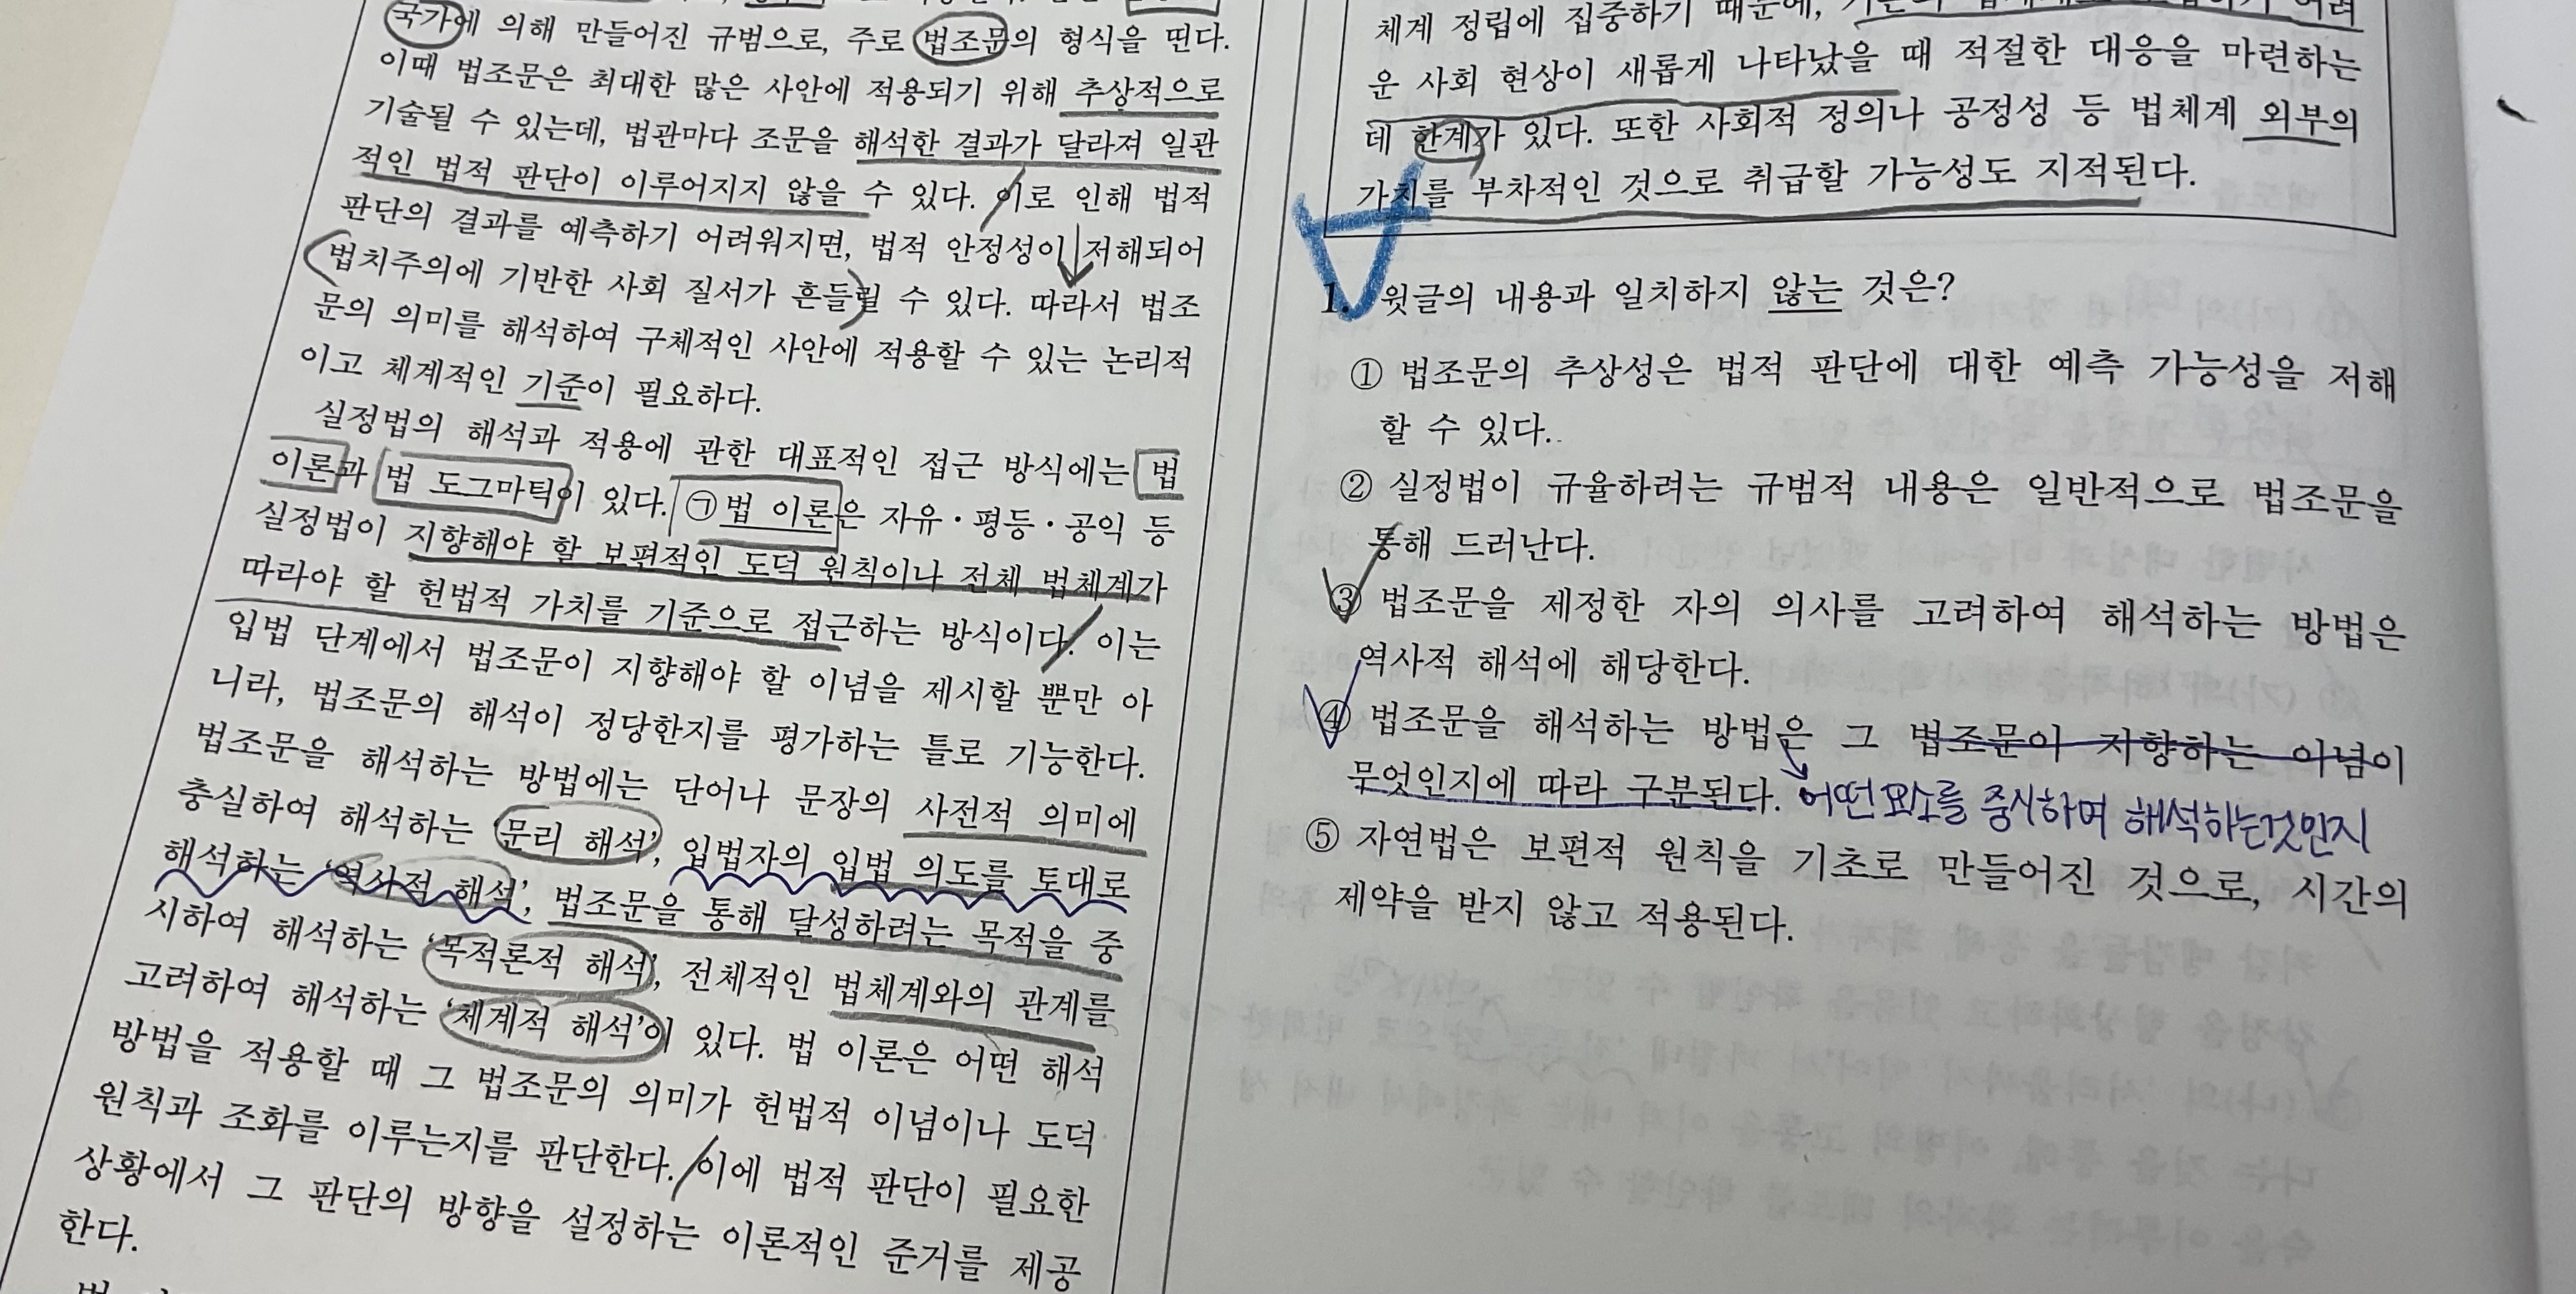 국가에 의해 만들어진 규범으로, 주로 법조문의 형식을 띤다.
이때 법조문은 최대한 많은 사안에 적용되기 위해 추상적으로
기술될 수 있는데, 법관마다 조문을 해석한 결과가 달라져 일관
적인 법적 판단이 이루어지지 않을 수 있다. 이로 인해 법적
판단의 결과를 예측하기 어려워지면, 법적 안정성이 저해되어
법치주의에 기반한 사회 질서가 흔들릴 수 있다. 따라서 법조
문의 의미를 해석하여 구체적인 사안에 적용할 수 있는 논리적
이고 체계적인 기준이 필요하다.
실정법의 해석과 적용에 관한 대표적인 접근 방식에는 법
이론과 법 도그마틱이 있다. ㉠법 이론은 자유·평등·공익 등
실정법이 지향해야 할 보편적인 도덕 원칙이나 전체 법체계가
따라야 할 헌법적 가치를 기준으로 접근하는 방식이다. 이는
입법 단계에서 법조문이 지향해야 할 이념을 제시할 뿐만 아
니라, 법조문의 해석이 정당한지를 평가하는 틀로 기능한다.
법조문을 해석하는 방법에는 단어나 문장의 사전적 의미에
충실하여 해석하는 ‘문리 해석’, 입법자의 입법 의도를 토대로
해석하는 ‘역사적 해석’, 법조문을 통해 달성하려는 목적을 중
시하여 해석하는 ‘목적론적 해석’, 전체적인 법체계와의 관계를
고려하여 해석하는 ‘체계적 해석’이 있다. 법 이론은 어떤 해석
방법을 적용할 때 그 법조문의 의미가 헌법적 이념이나 도덕
원칙과 조화를 이루는지를 판단한다. 이에 법적 판단이 필요한
상황에서 그 판단의 방향을 설정하는 이론적인 준거를 제공
한다.
체계 정립에 집중하기 때문에,
운 사회 현상이 새롭게 나타났을 때 적절한 대응을 마련하는
데 한계가 있다. 또한 사회적 정의나 공정성 등 법체계 외부의
가치를 부차적인 것으로 취급할 가능성도 지적된다.
1. 윗글의 내용과 일치하지 않는 것은?
① 법조문의 추상성은 법적 판단에 대한 예측 가능성을 저해
할 수 있다.
② 실정법이 규율하려는 규범적 내용은 일반적으로 법조문을
통해 드러난다.
③ 법조문을 제정한 자의 의사를 고려하여 해석하는 방법은
역사적 해석에 해당한다.
④ 법조문을 해석하는 방법은 그 법조문이 지향하는 이념이
무엇인지에 따라 구분된다. 어떤 요소를 중시하며 해석하는것인지
⑤ 자연법은 보편적 원칙을 기초로 만들어진 것으로, 시간의
제약을 받지 않고 적용된다.